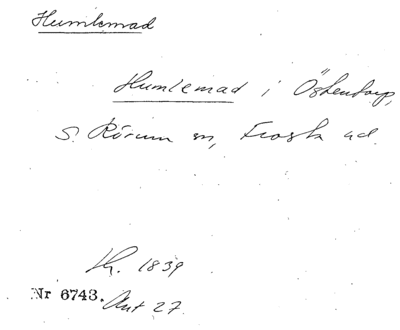 Humlemad
Humlemad i Östendorp,
S. Rörum sn, Frosta hd.
Lh. 1839
Nr 6743. Akt 27.